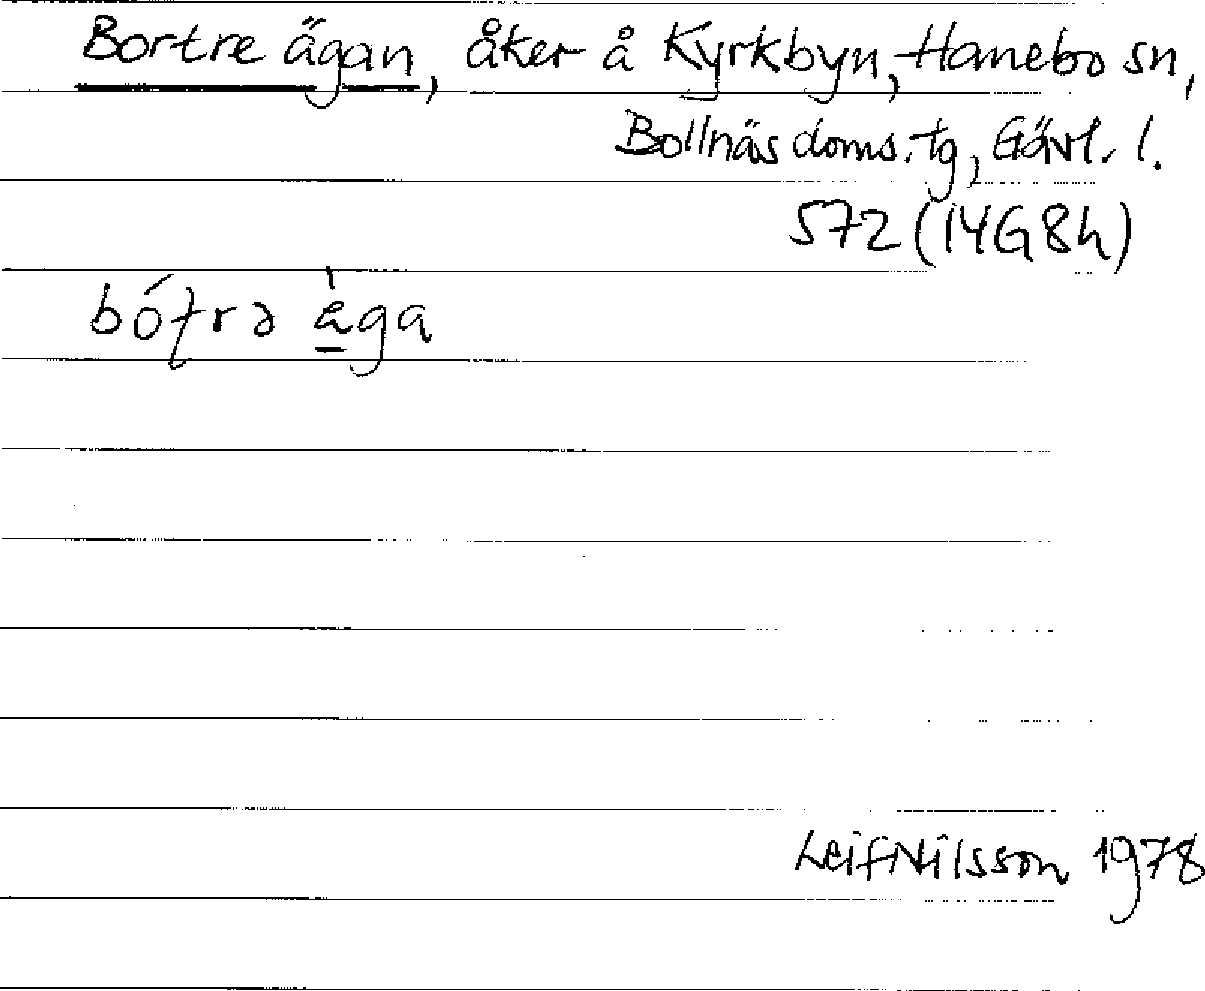 Bortre ägan, åker å Kyrkbyn, Hanebo sn,
Bollnäs doms. tg, Gävl. l.
572 (14G8h)
bóʈrə
Leif Nilsson 1978